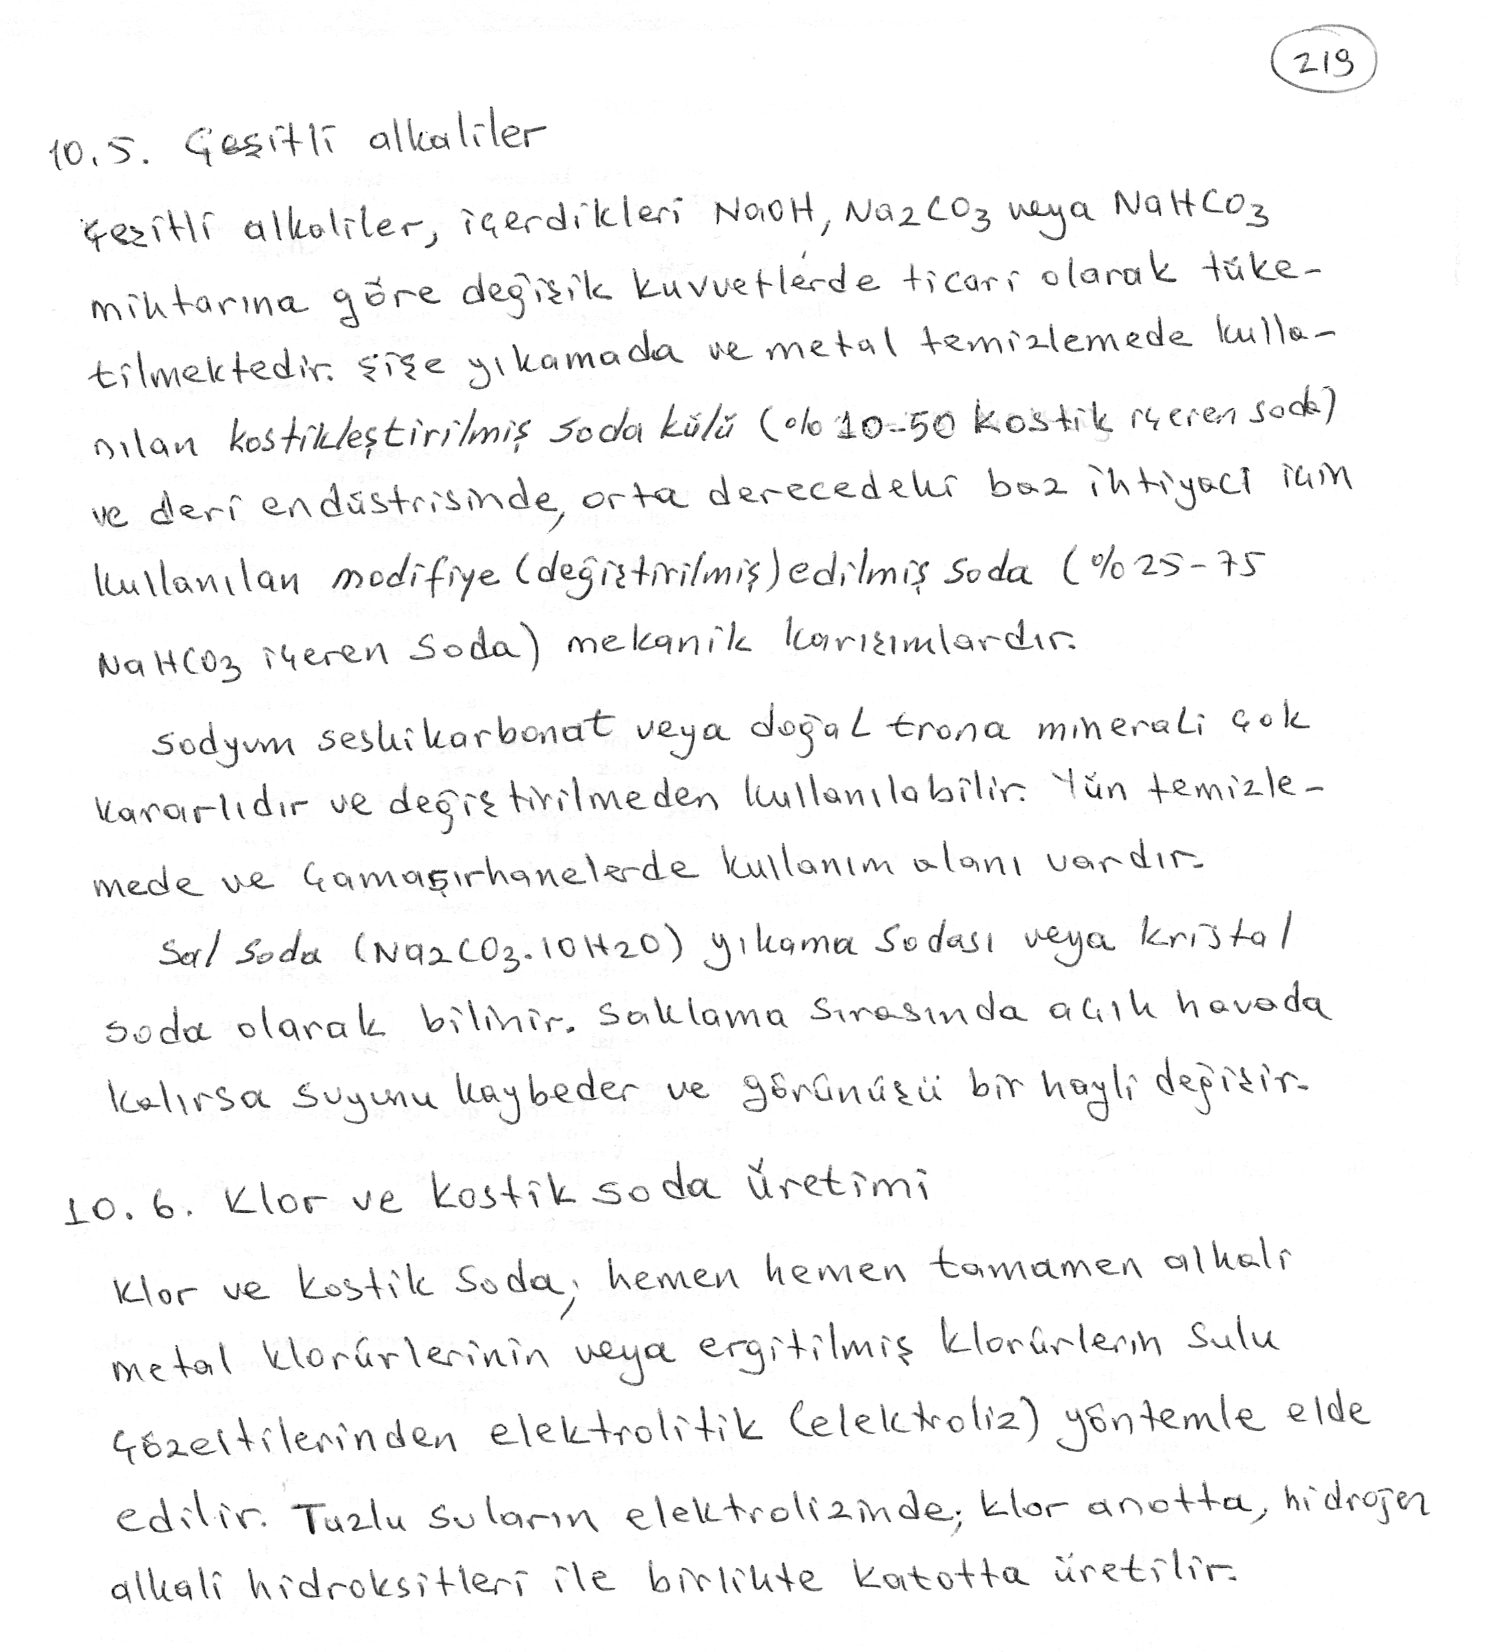 219
10.5. Çeşitli alkaliler
Çeşitli alkaliler, içerdikleri NaOH, Na2CO3 veya NaHCO3
miktarına göre değişik kuvvetlerde ticari olarak tüke-
tilmektedir. Şişe yıkamada ve metal temizlemede kulla-
nılan kostikleştirilmiş soda külü (%10-50 kostik içeren soda)
ve deri endüstrisinde, orta derecedeki baz ihtiyacı için
kullanılan modifiye (değiştirilmiş) edilmiş soda (%25-75
NaHCO3 içeren soda) mekanik karışımlardır.
Sodyum seskikarbonat veya doğal trona minerali çok
kararlıdır ve değiştirilmeden kullanılabilir. Yün temizle-
mede ve çamaşırhanelerde kullanım alanı vardır.
Sal soda (Na2CO3.10H2O) yıkama sodası veya kristal
soda olarak bilinir. Saklama sırasında açık havada
kalırsa suyunu kaybeder ve görünüşü bir hayli değişir.
10.6. Klor ve kostik soda üretimi
Klor ve kostik soda; hemen hemen tamamen alkali
metal klorürlerinin veya ergitilmiş klorürlerin sulu
çözeltilerinden elektrolitik (elektroliz) yöntemle elde
edilir. Tuzlu suların elektrolizinde; klor anotta, hidrojen
alkali hidroksitleri ile birlikte katotta üretilir.